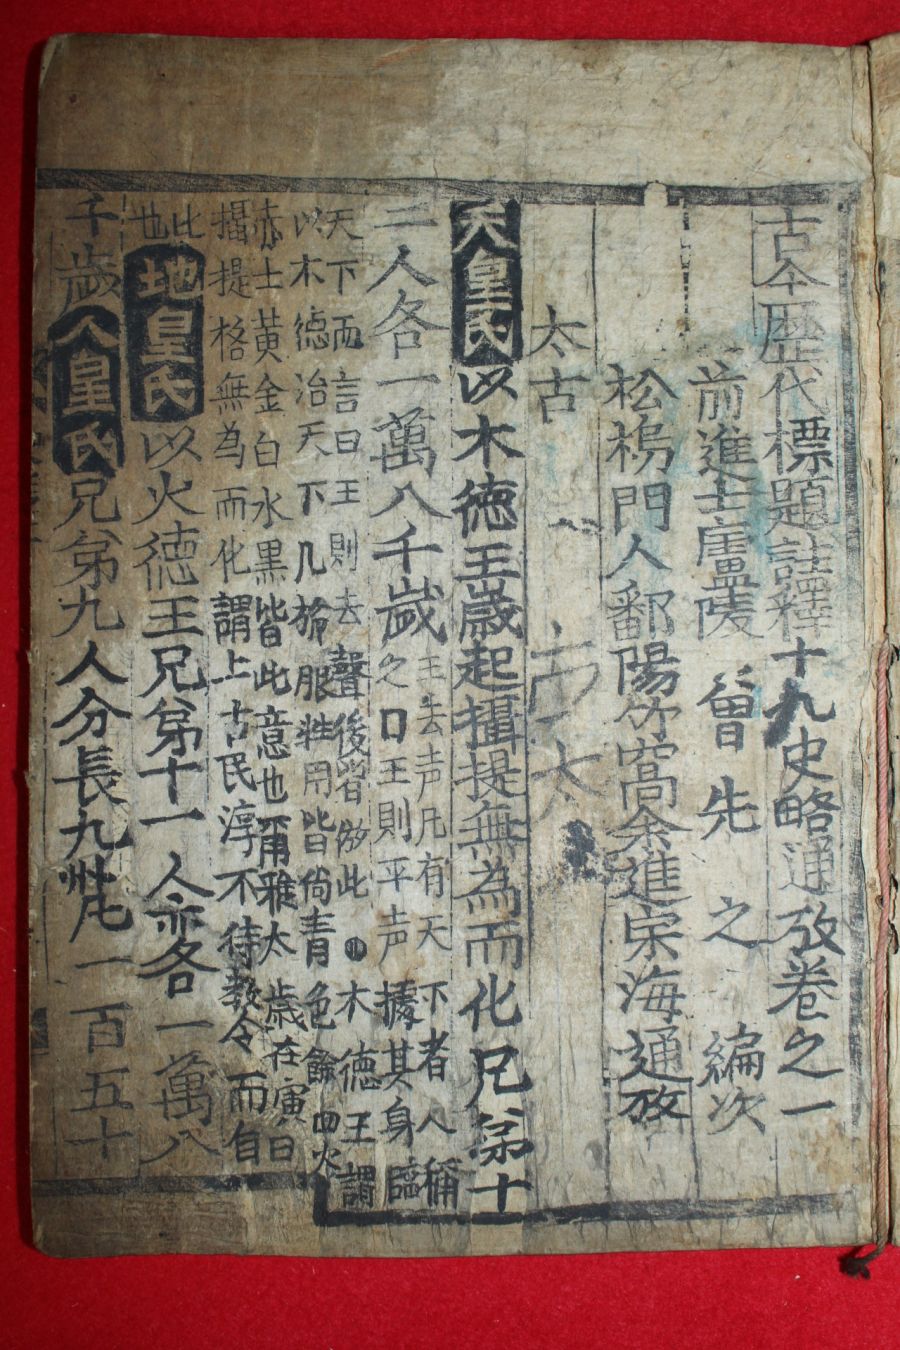 古今歷代標題註釋十九史略通攷卷之一
前進士廬陵 曾先之 編次
松塢門人鄱陽竹窩余進宗海通攷
太古
古太
天皇氏以木德王歲起攝提無為而化兄弟十
二人各一萬八千歲
王去声凡有天下者人稱
之口王則平声據其身臨
天下而言曰王則去聲後皆倣此 木德王謂
以木德治天下凡旂服牲用皆尚青色餘四火
赤土黃金白水黑皆此意也爾雅太歲在寅曰
攝提格無為而化謂上古民淳不待教令而自
比也
地皇氏以火德王兄弟十一人亦各一萬八
千歲人皇氏兄弟九人分長九州凡一百五十